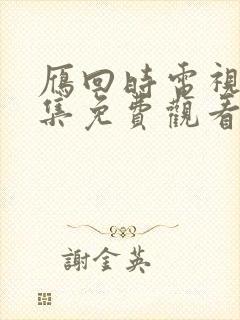 雁回時電視
集免費觀看
謝金英